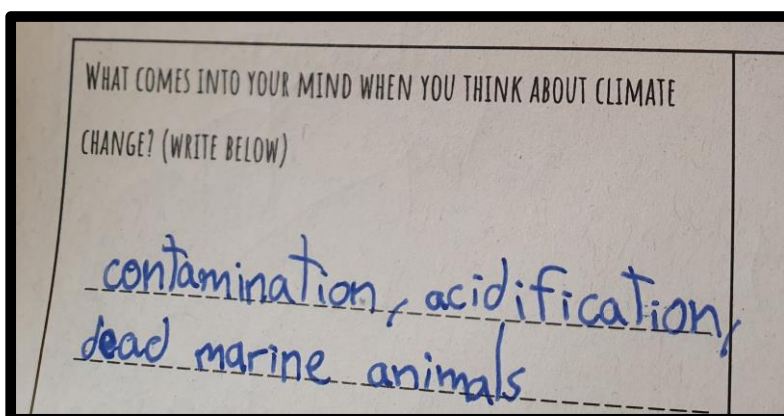 WHAT COMES INTO YOUR MIND WHEN YOU THINK ABOUT CLIMATE
CHANGE? (WRITE BELOW)
contamination, acidification,
dead marine animals